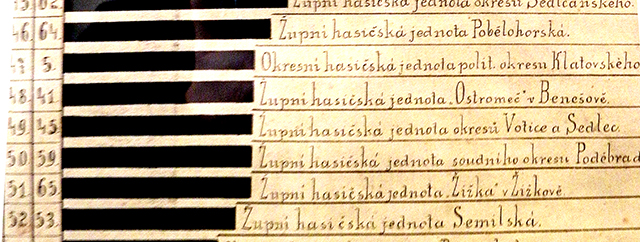 Župní hasičská jednota okresu Sedlčanského.
46. 64. Župní hasičská jednota Pobělohorská.
5. Okresní hasičská jednota polit. okresu Klatovského
48. 41. Župní hasičská jednota „Ostromeč" v Benešově.
49. 45. Župní hasičská jednota okresů Votice a Sedlec.
50. 59. Župní hasičská jednota soudního okresu Poděbrad
51. 65. Župní hasičská jednota „Žižka" v Žižkově.
52. 53. Župní hasičská jednota Semilská.